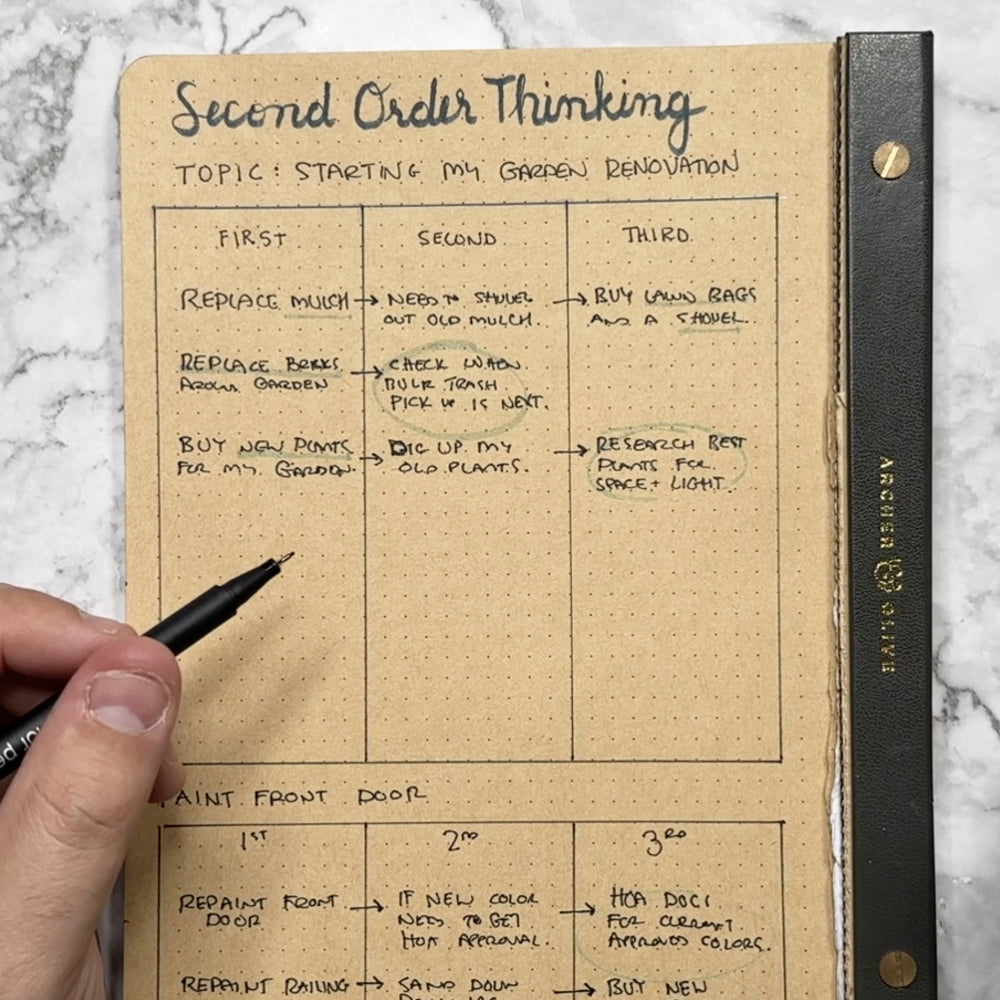 Second Order Thinking
TOPIC: STARTING MY GARDEN RENOVATION
FIRST
SECOND
THIRD
REPLACE MULCH
NEED TO SHOVEL
OUT OLD MULCH.
BUY LAWN BAGS
AND A SHOVEL.
REPLACE BRICKS
AROUND GARDEN
CHECK WHEN
BULK TRASH
PICK UP IS NEXT.
BUY NEW PLANTS
FOR MY GARDEN.
DIG UP MY
OLD PLANTS.
RESEARCH BEST
PLANTS FOR
SPACE + LIGHT.
PAINT FRONT DOOR
1ST
2ND
3RD
REPAINT FRONT
DOOR
IF NEW COLOR
NEED TO GET
HOA APPROVAL.
HOA DOCS
FOR CURRENT
APPROVED COLORS.
REPAINT RAILING
SAND DOWN
BUY NEW
ARCHER OLIVE